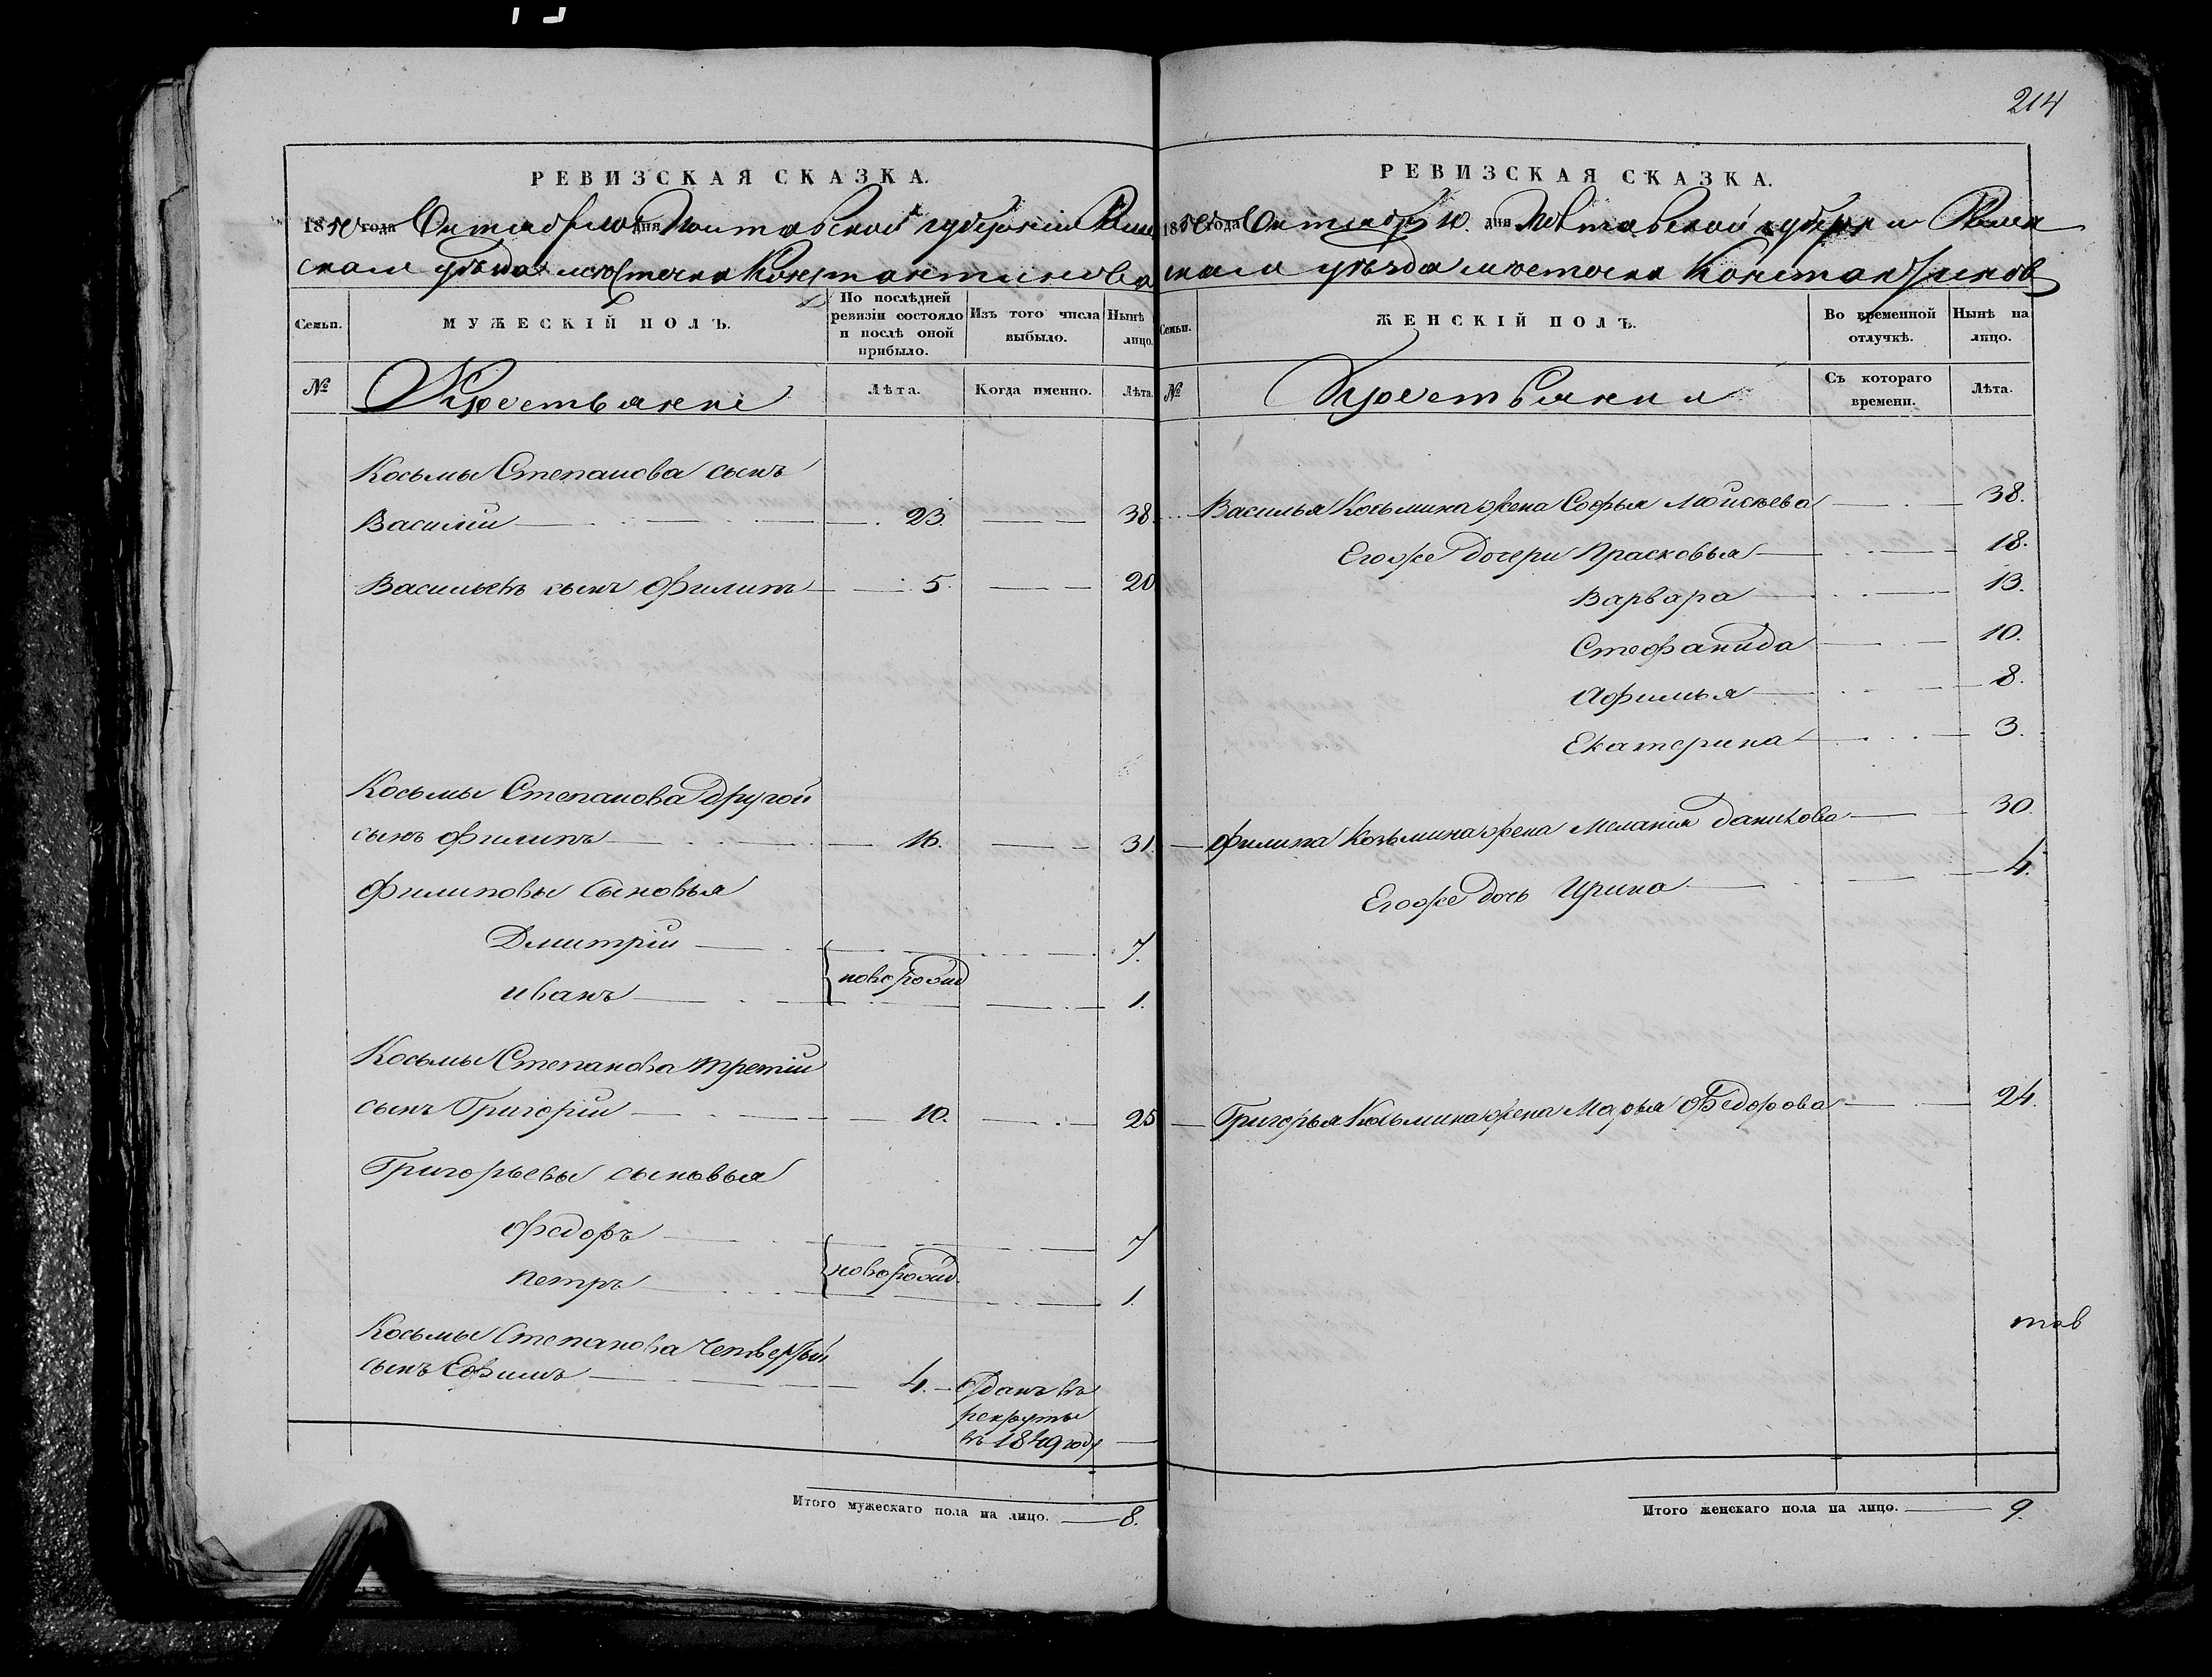 214
РЕВИЗСКАЯ СКАЗКА.
1850 года Октября 10 дня Полтавской губернiи Ромен
скаго уѣзда мѣстечка Константинова
Семьи. МУЖЕСКIЙ ПОЛЪ. По послѣдней ревизiи состояло и послѣ оной прибыло. Изъ того числа выбыло. Нынѣ лицо.
№ Крестьяне Лѣта. Когда именно. Лѣта
Косьмы Степанова сынъ
Василiй 23. 38.
Васильевъ сынъ Филипъ 5. 20
Косьмы Степанова другой
сынъ Филипъ 16. 31.
Филиповы сыновья
Дмитрiй 7.
новорожд
Иванъ 1.
Косьмы Степанова третiй
сынъ Григорiй 10. 25
Григорьевы сыновья
Федоръ 7
новорожд.
Петръ 1.
Косьмы Степанова четвертый
сынъ Ефимъ 4. Отданъ въ
рекруты
въ 1849 году
Итого мужескаго пола на лицо. 8.
РЕВИЗСКАЯ СКАЗКА.
1850 года Октября 10. дня Полтавской губернiи Ромен
скаго уѣзда мѣстечка Константинов
Семьи. ЖЕНСКIЙ ПОЛЪ. Во временной отлучкѣ. Нынѣ на лицо.
№ Крестьяне Съ котораго времени. Лѣта.
Василья Косьмина жена Софья Моисѣева 38.
Егоже дочери Прасковья 18.
Варвара 13.
Стефанида 10.
Афимья 8.
Екатерина 3.
Филипа Козьмина жена Меланiя Данилова 30.
Егоже дочь Ирина 4.
Григорья Козьмина жена Марья Федорова 24.
Итого женскаго пола на лицо. 9.